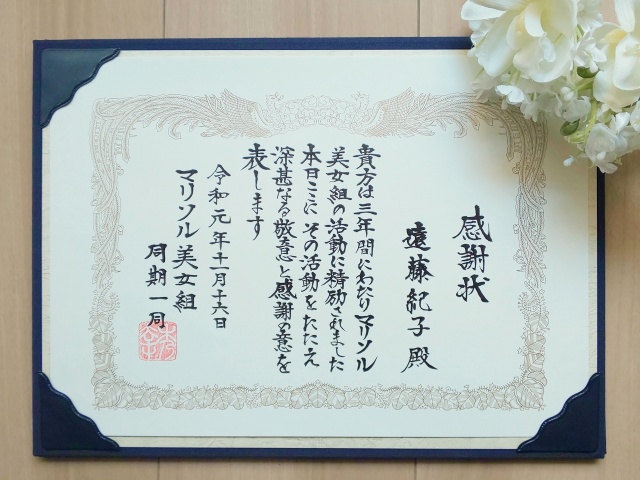 感謝状
遠藤紀子 殿
貴方は三年間にわたりマリソル
美女組の活動に精励されました
本日ここに その活動をたたえ
深甚なる敬意と感謝の意を
表します
令和元年十一月十六日
マリソル美女組
同期一同